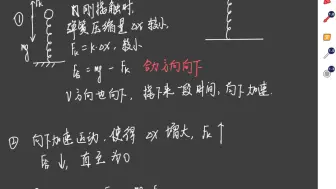 ① 刚刚接触时
弹簧压缩量 Δx 较小
mg
Fk = k·Δx, 较小
F合 = mg - Fk 合力方向向下
V方向也向下, 接下来一段时间, 向下加速.
② 向下加速运动, 使得 Δx 增大, Fk ↑
F合 ↓, 直至为0